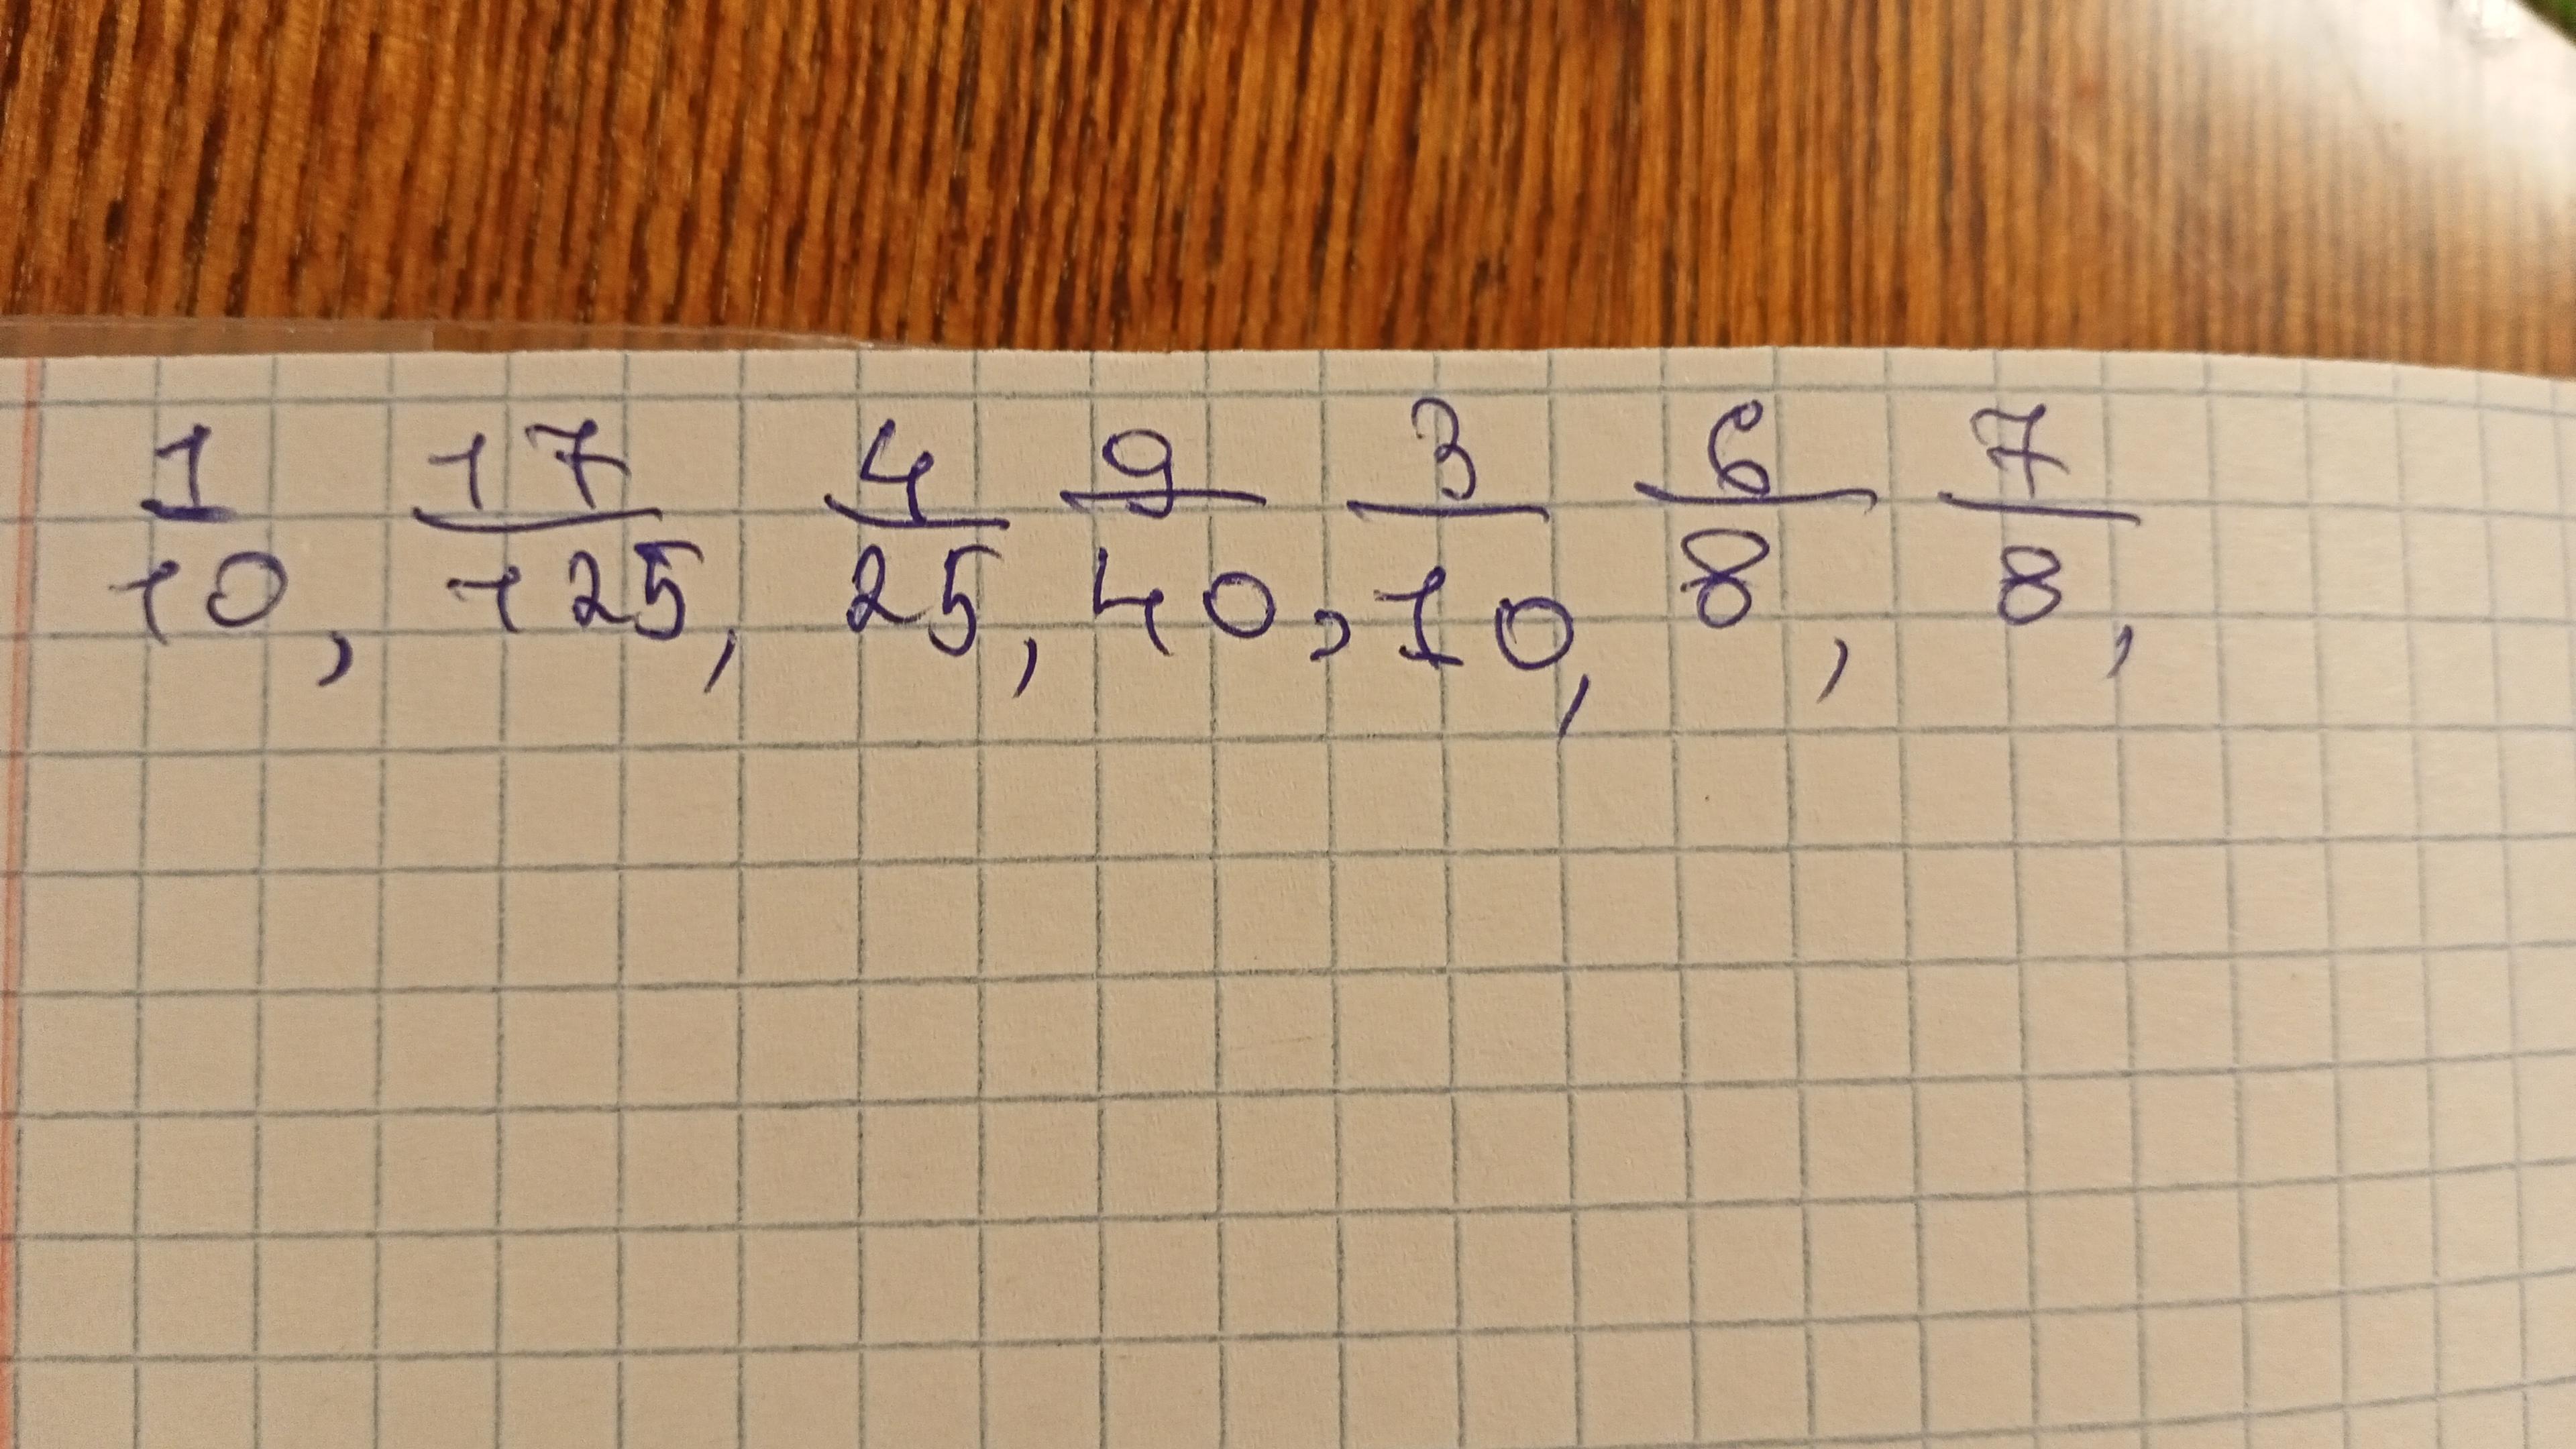 1/10, 17/125, 4/25, 9/40, 3/10, 6/8, 7/8,